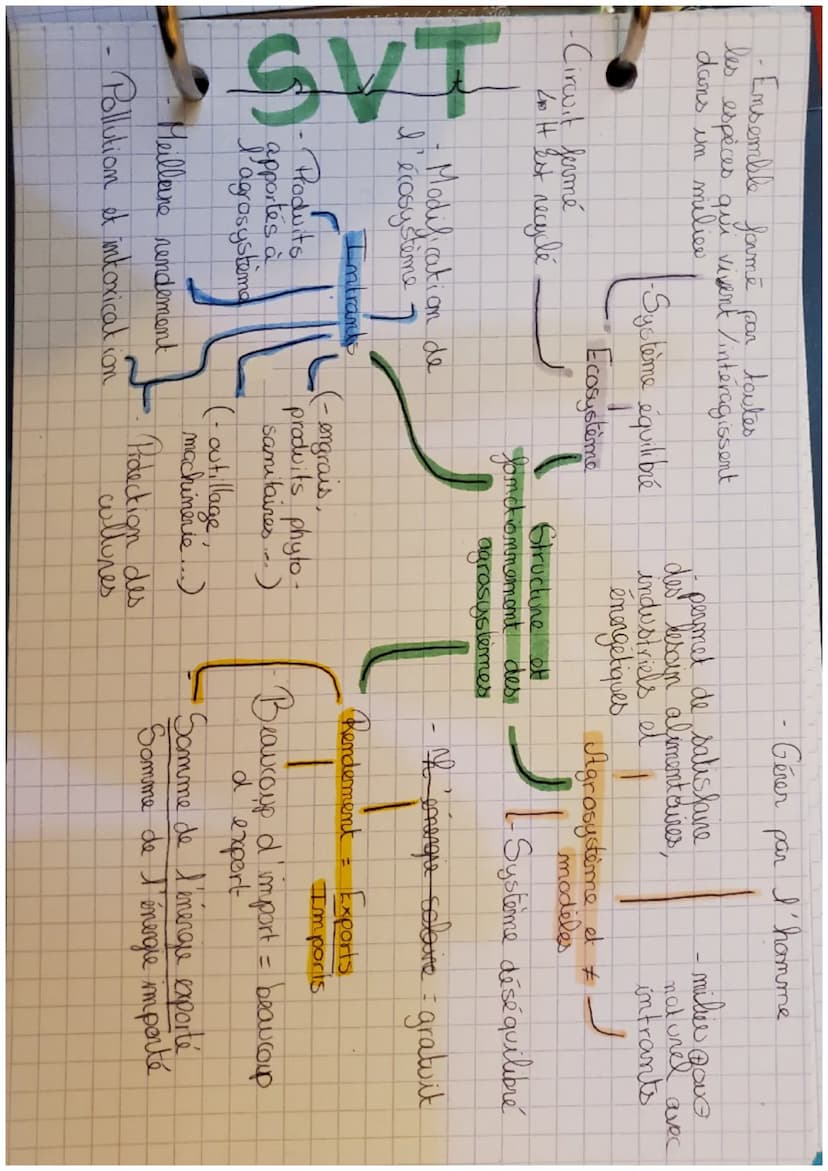 SVT
- Ensemble formé par toutes
les espèces qui vivent/intéragissent
dans un milieu
- Système équilibré
Ecosystème
- Circuit fermé
↳ H est recyclé
- Gérer par l'homme
- permet de satisfaire
des besoin alimentaires,
industriels et
énergétiques
- milieu
naturel avec
intrants
Agrosystème et ≠
modèles
- Système déséquilibré
Structure et
fonctionnement des
agrosystèmes
- Modification de
l'écosystème
Intrants
- Produits
apportés à
l'agrosystème
(- engrais,
produits phyto-
sanitaires ...)
(- outillage,
machinerie ...)
- Meilleure rendement
- Pollution et intoxication
- Protection des
cultures
- l'énergie solaire = gratuit
Rendement = Exports
Imports
- Beaucoup d'import = beaucoup
d'export
- Somme de l'énergie exporté
Somme de l'énergie importé